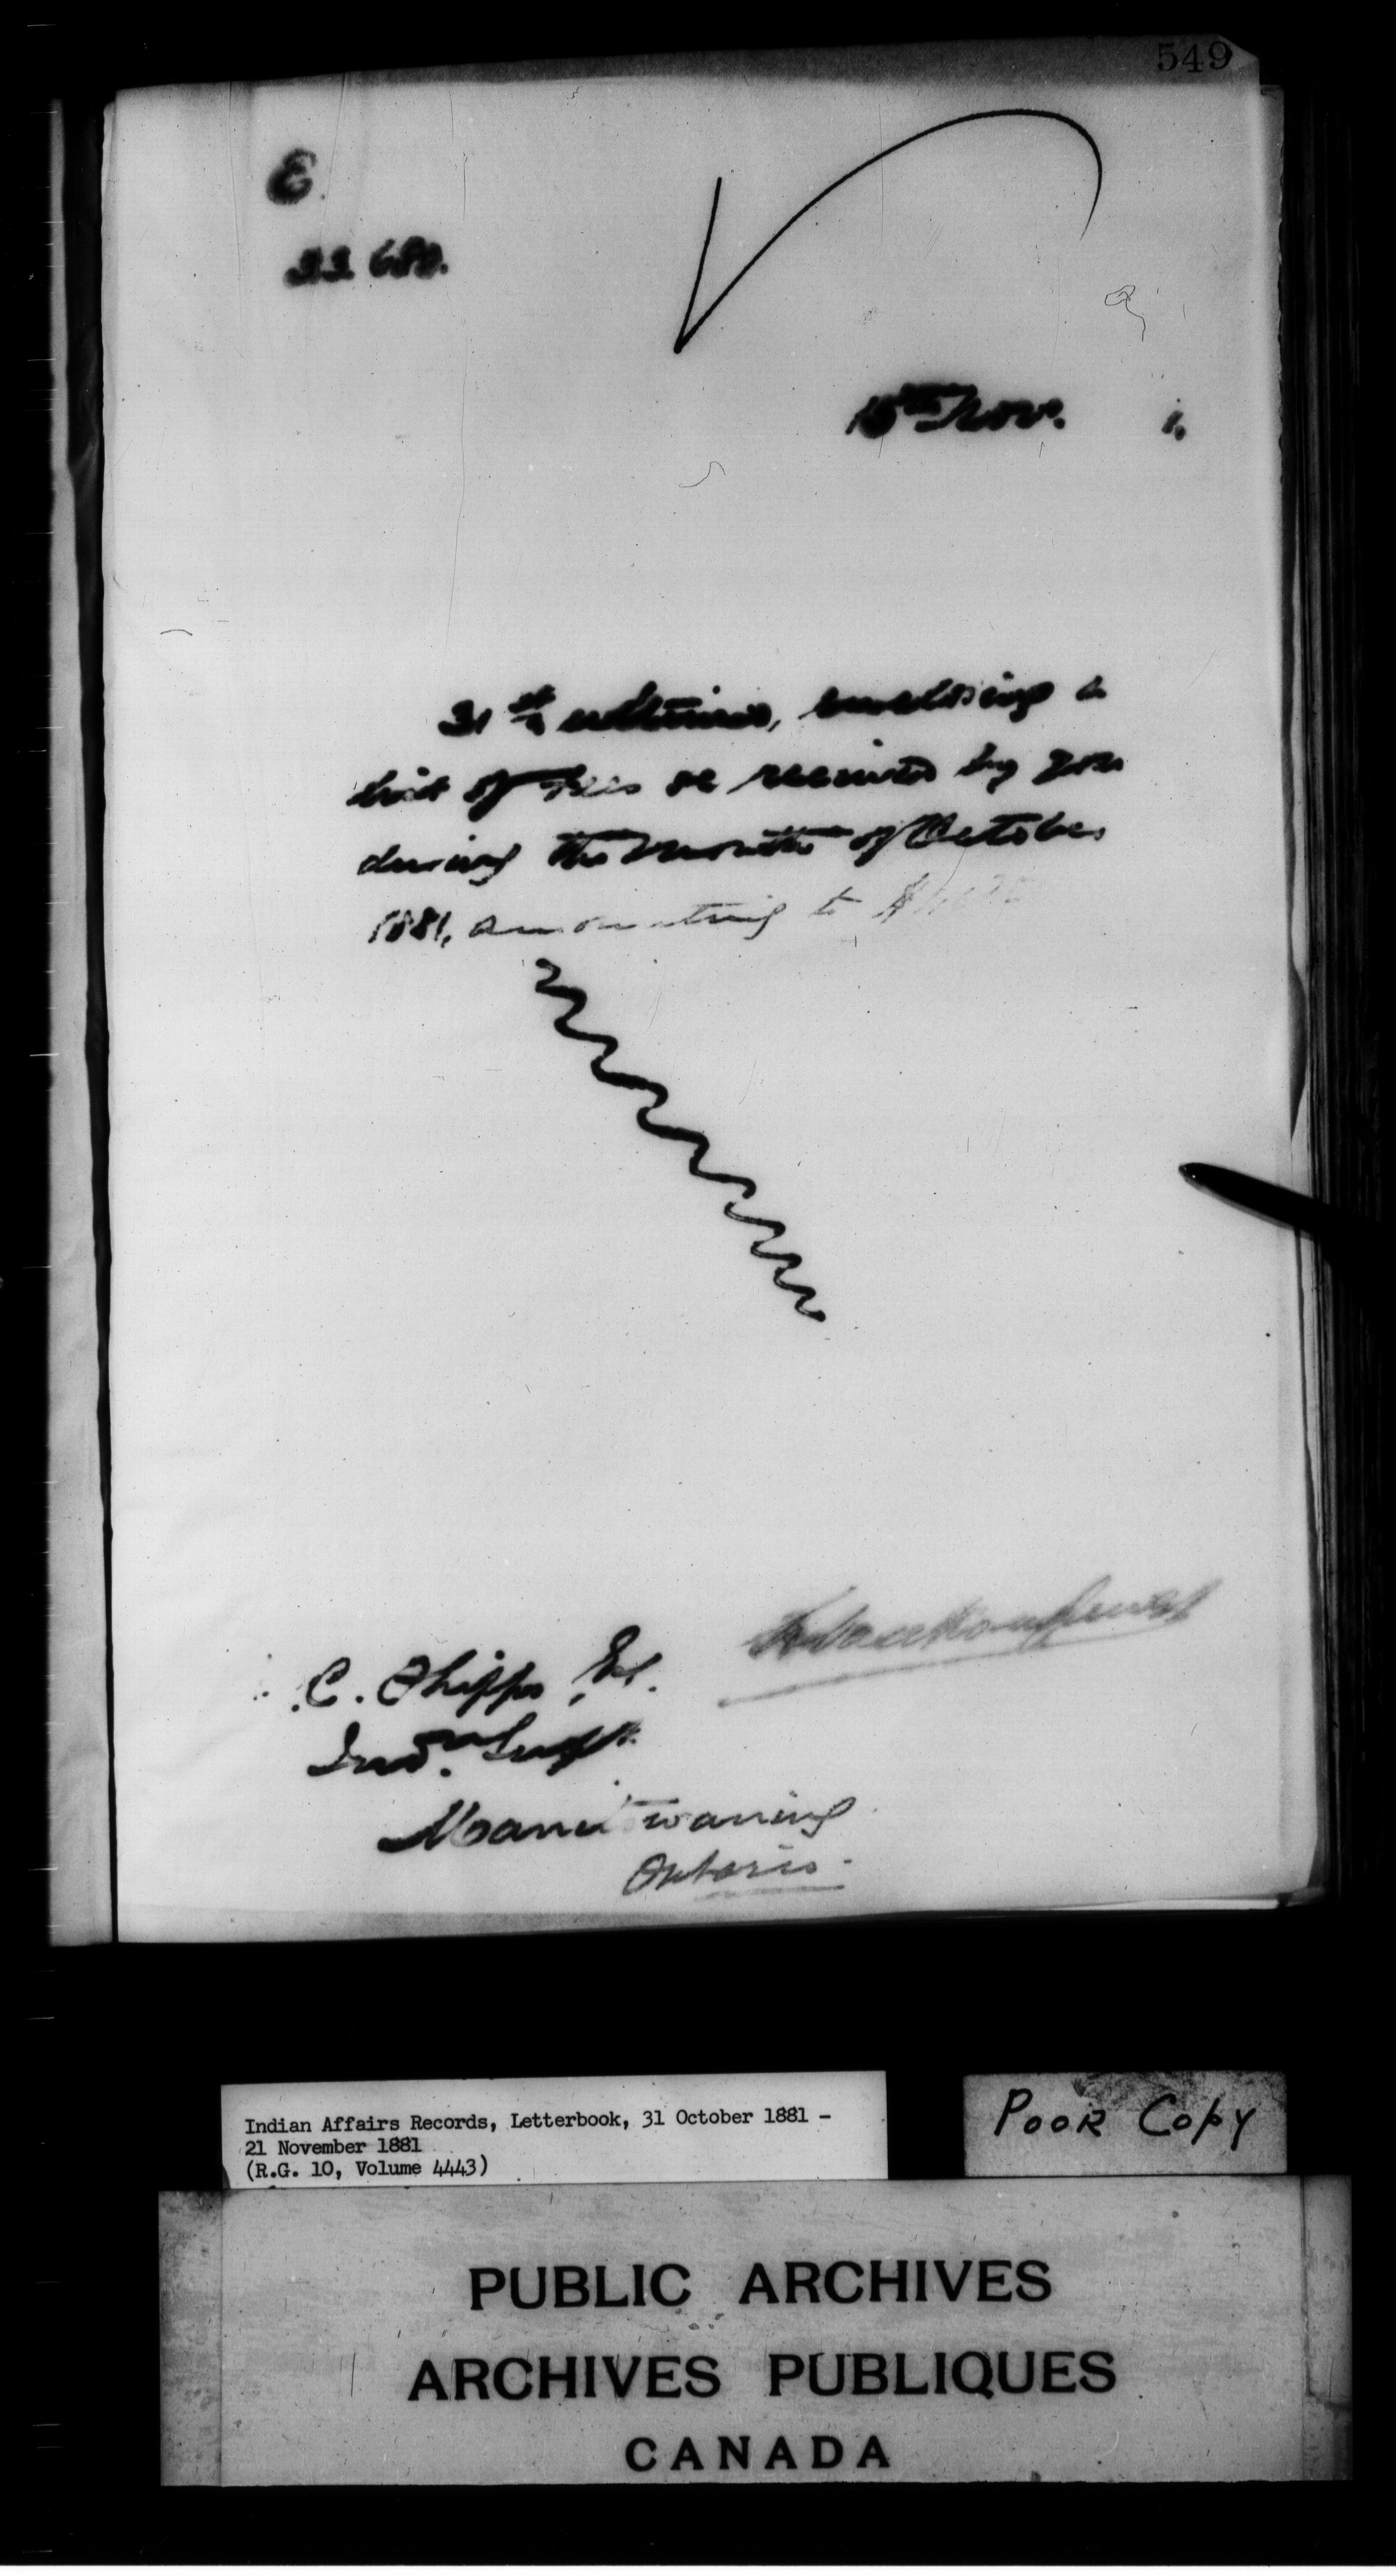 549
E.
33 680.
15th Nov. 1.
31st ultimo, enclosing a
list of fees &c received by you
during the month of October
1881, amounting to $
L Vankoughnet
C. Phipps, Esq.
Indn. Supt.
Manitowaning
Ontario.
Indian Affairs Records, Letterbook, 31 October 1881 -
21 November 1881
(R.G. 10, Volume 4443)
POOR COPY
PUBLIC ARCHIVES
ARCHIVES PUBLIQUES
CANADA